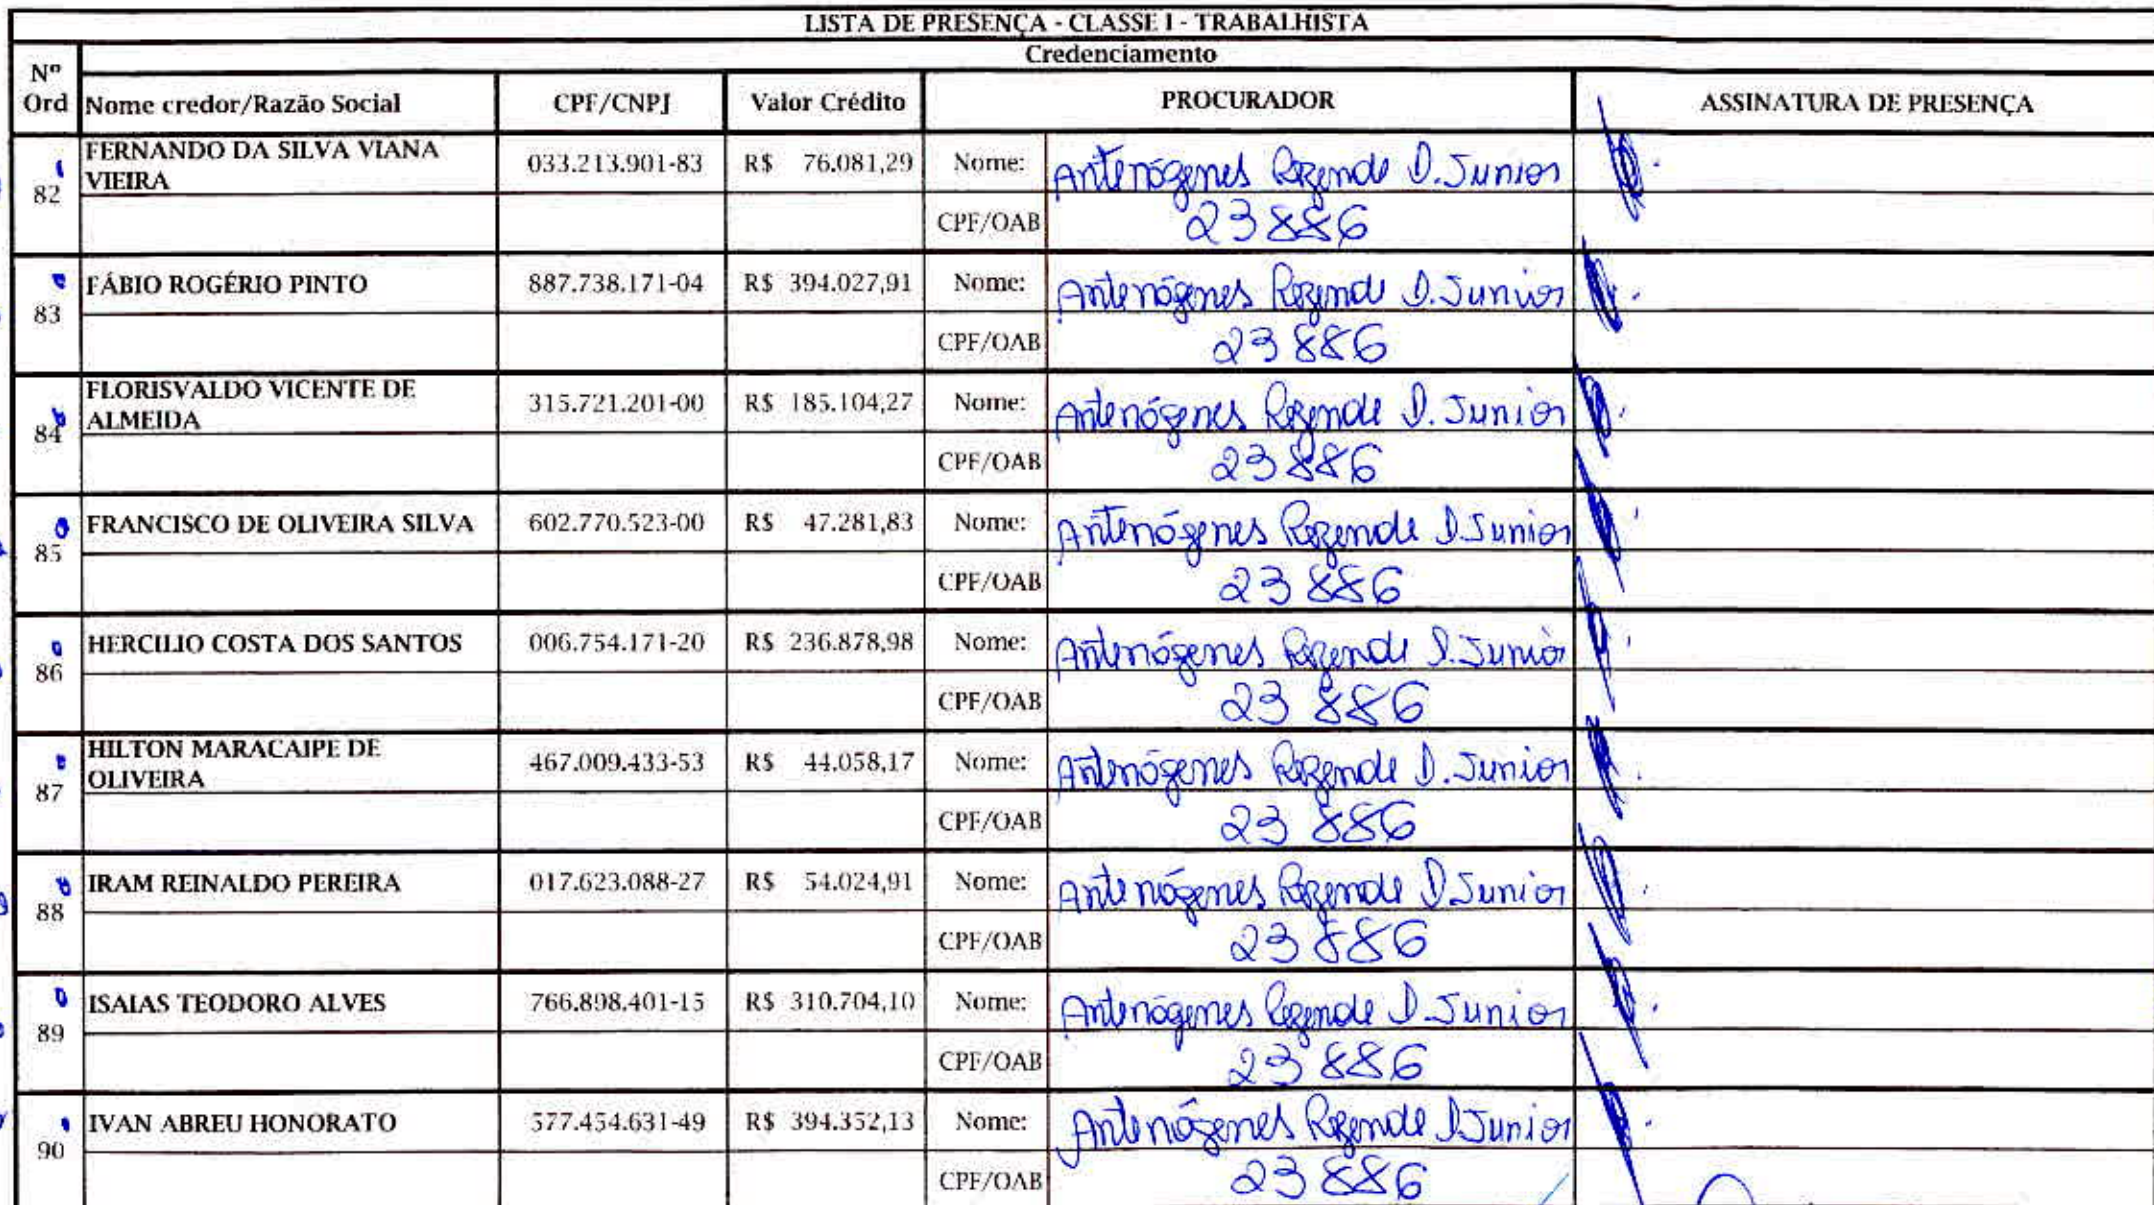 LISTA DE PRESENÇA - CLASSE I - TRABALHISTA
Credenciamento
Nº Ord Nome credor/Razão Social CPF/CNPJ Valor Crédito PROCURADOR ASSINATURA DE PRESENÇA
82 FERNANDO DA SILVA VIANA VIEIRA 033.213.901-83 R$ 76.081,29 Nome: Antenógenes Rezende D. Junior
CPF/OAB 23886
83 FÁBIO ROGÉRIO PINTO 887.738.171-04 R$ 394.027,91 Nome: Antenógenes Rezende D. Junior
CPF/OAB 23886
84 FLORISVALDO VICENTE DE ALMEIDA 315.721.201-00 R$ 185.104,27 Nome: Antenógenes Rezende D. Junior
CPF/OAB 23886
85 FRANCISCO DE OLIVEIRA SILVA 602.770.523-00 R$ 47.281,83 Nome: Antenógenes Rezende D Junior
CPF/OAB 23886
86 HERCILIO COSTA DOS SANTOS 006.754.171-20 R$ 236.878,98 Nome: Antenógenes Rezende D. Junior
CPF/OAB 23886
87 HILTON MARACAIPE DE OLIVEIRA 467.009.433-53 R$ 44.058,17 Nome: Antenógenes Rezende D. Junior
CPF/OAB 23886
88 IRAM REINALDO PEREIRA 017.623.088-27 R$ 54.024,91 Nome: Antenógenes Rezende D Junior
CPF/OAB 23886
89 ISAIAS TEODORO ALVES 766.898.401-15 R$ 310.704,10 Nome: Antenógenes Rezende D. Junior
CPF/OAB 23886
90 IVAN ABREU HONORATO 577.454.631-49 R$ 394.352,13 Nome: Antenógenes Rezende D Junior
CPF/OAB 23886